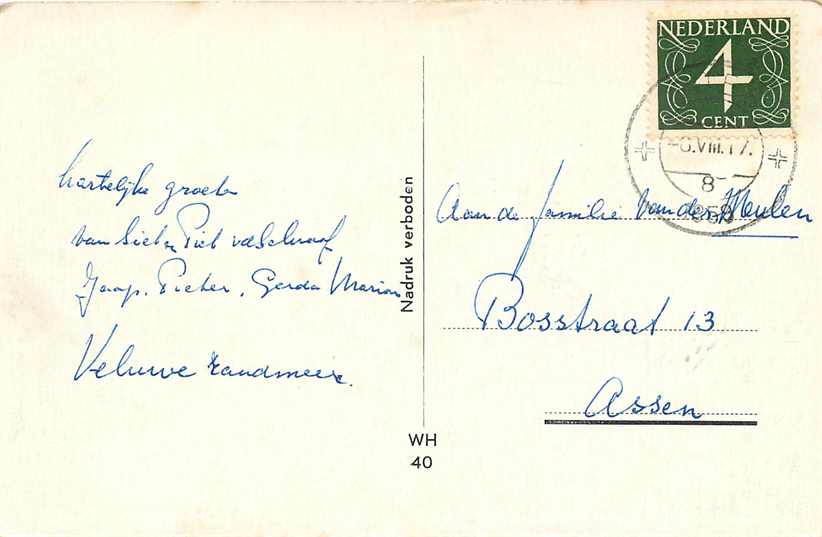 hartelijke groeten
van Siet en Piet vdSchraaf
Jaap. Pieter, Gerda Marion
Veluwe randmeer.
Nadruk verboden
WH
40
NEDERLAND
4
CENT
VIII.17.
8
Aan de familie van der Meulen
Bosstraat 13
Assen